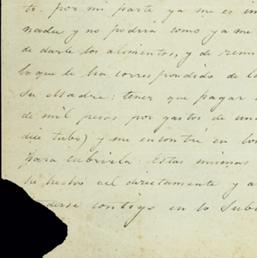 to. por mi parte ya me es im
nada y no podria como ya me
de darle los alimentos, y de remi
lo que le ha correspondido de l
su Madre: tener que pagar
de mil pesos por gastos de un
que tube) y me encontré en lo
para cubrirla. Estas mismas
he hecho directamente y a
contigo en lo sub